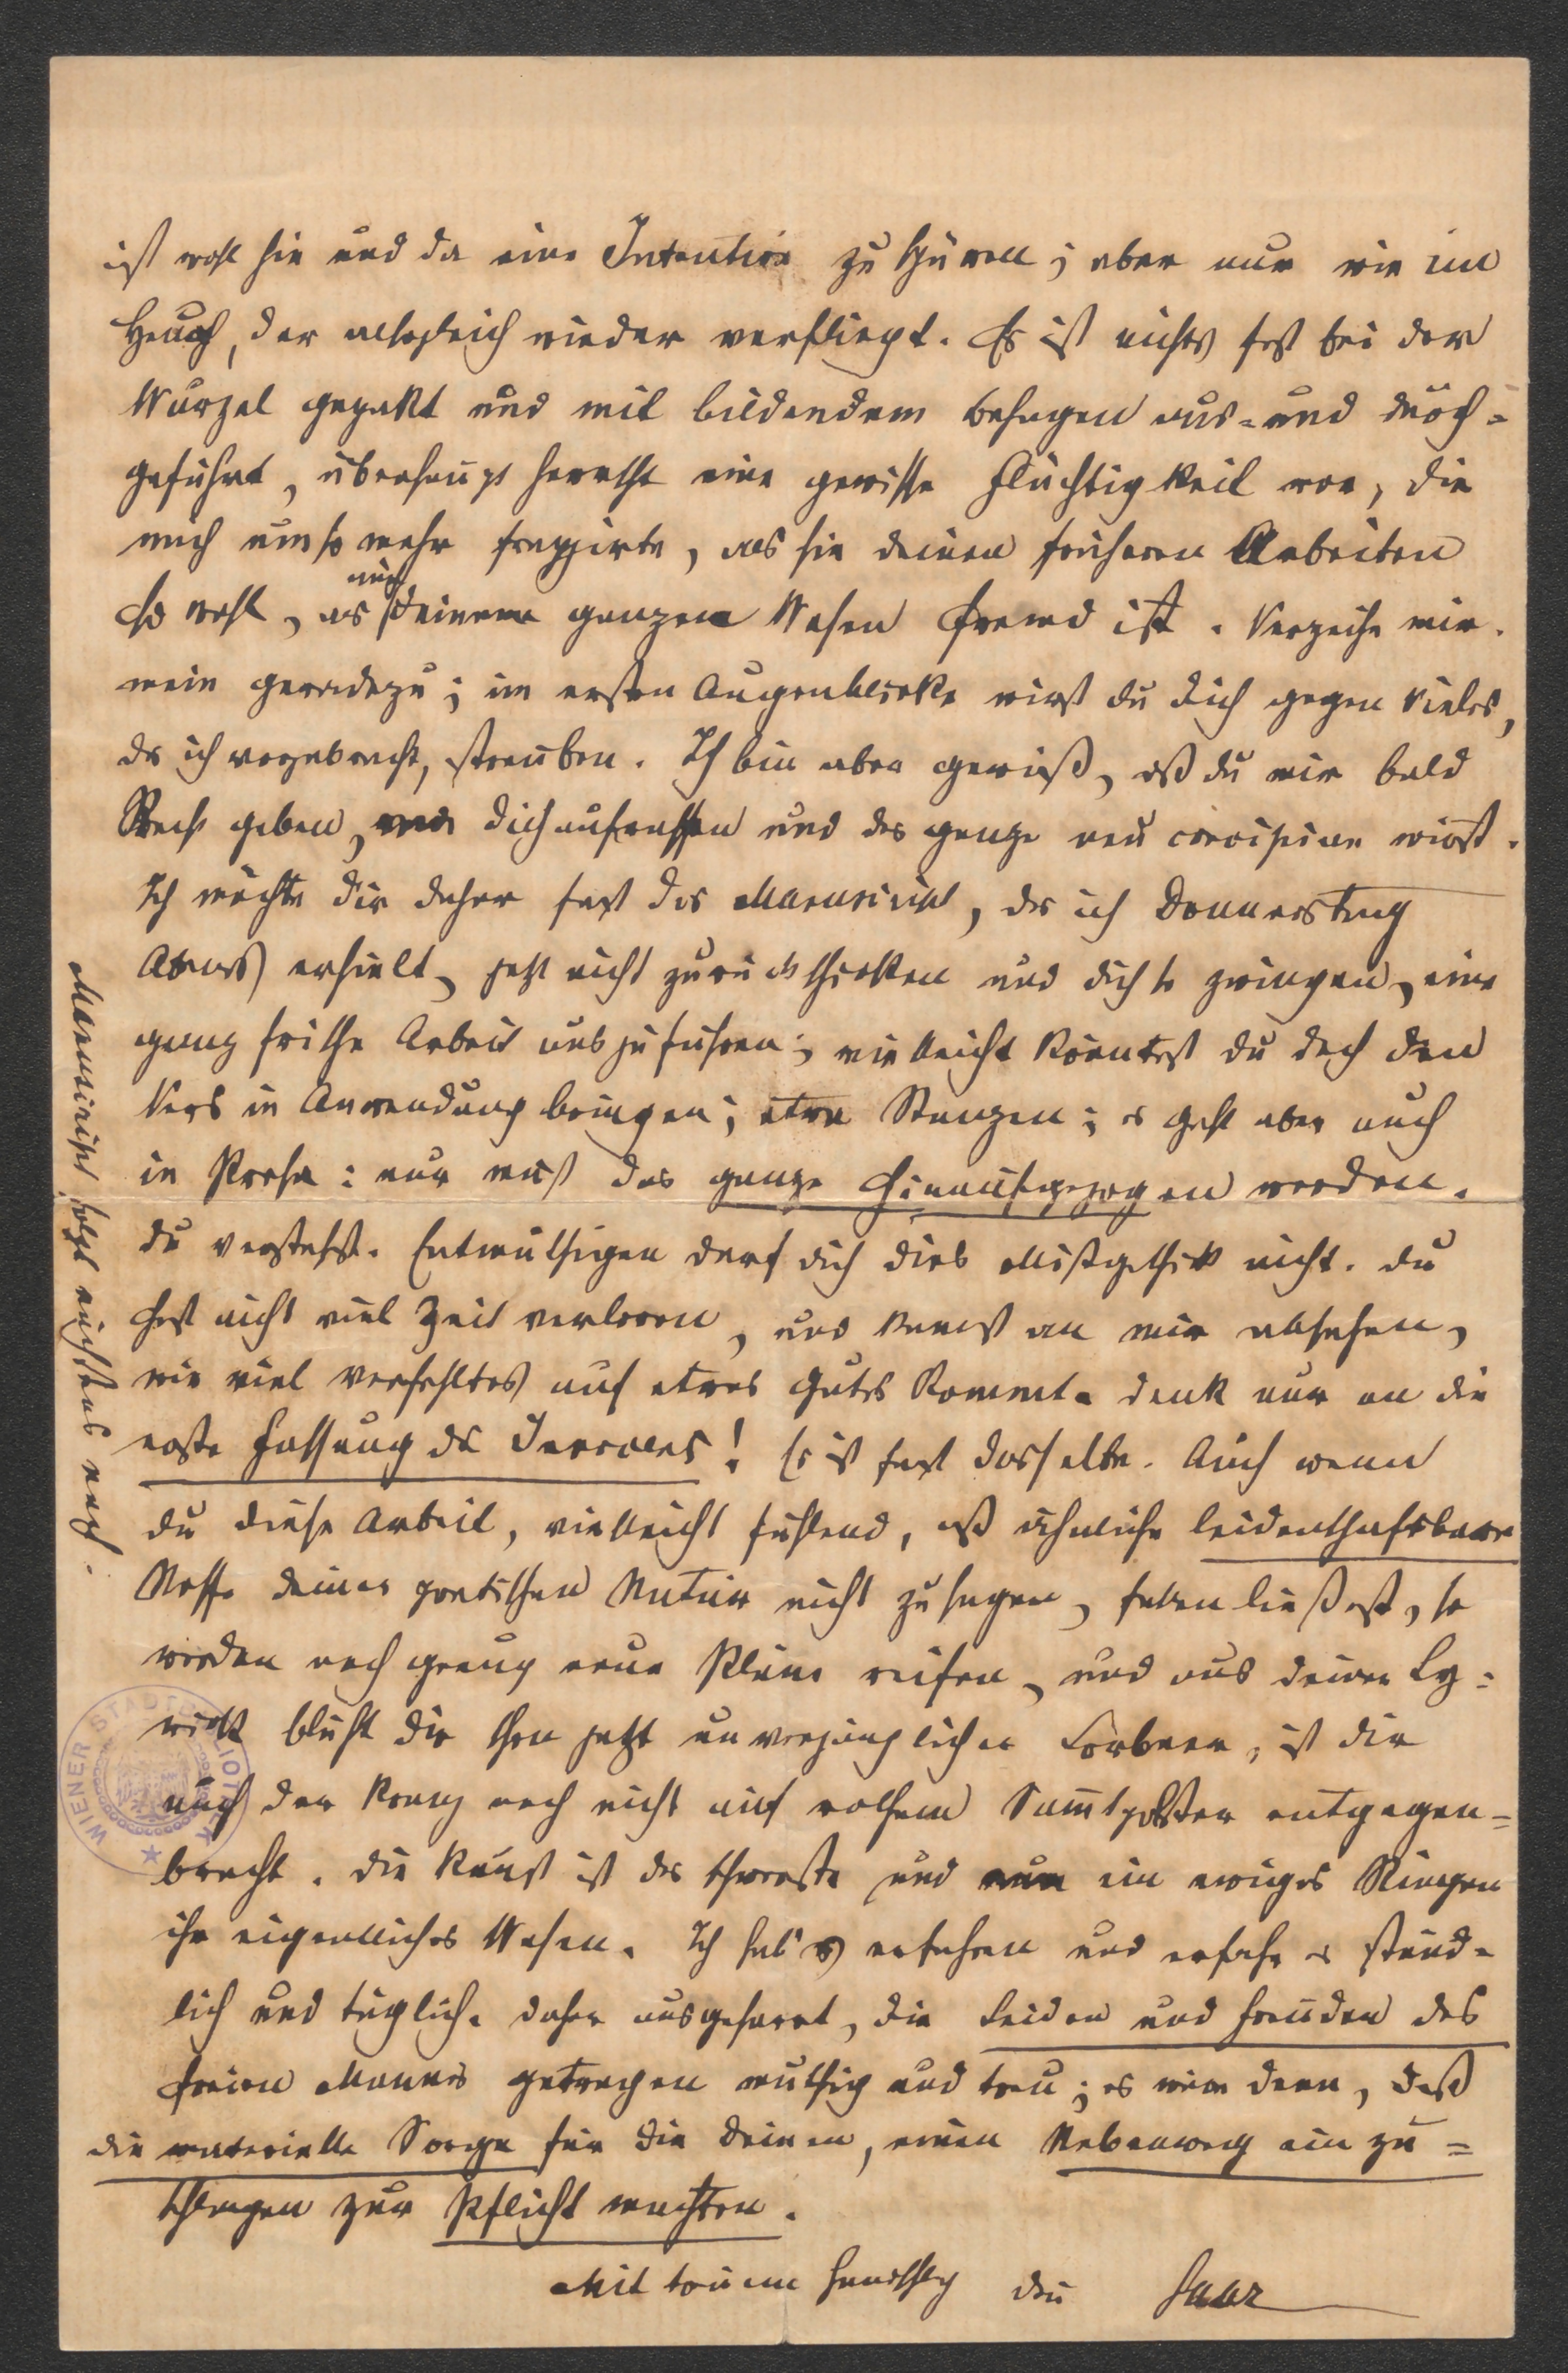 ist wohl hie und da eine Intention zu spüren; aber nur wie im
Hauch, der allsogleich wieder verfliegt. Es ist nichts fest bei der
Wurzel gepakt und mit bildendem Behagen aus- und durch-
geführt, überhaupt herrscht eine gewisse Flüchtigkeit vor, die
mich umso mehr frappirte, als sie deinen früheren Arbeiten
so wohl, als auch deinem ganzen Wesen fremd ist. Verzeihe mir
mein geradezu; im ersten Augenblicke wirst du dich gegen Vieles,
das ich vorgebracht, sträuben. Ich bin aber gewiß, daß du mir bald
Recht geben, dich aufraffen und das ganze neu concipiren wirst.
Ich möchte dir daher fast das Manuscript, das ich Donnerstag
Abends erhielt, jetzt nicht zurückschicken und dich so zwingen, eine
ganz frische Arbeit auszuführen; vielleicht könntest du doch den
Vers in Anwendung bringen; etwa Stanzen; es geht aber auch
in Prosa: nur muß das ganze hinaufgezogen werden.
du verstehst. Entmuthigen darf dich dies Mißgeschick nicht. du
hast nicht viel Zeit verloren, und kannst an mir absehen,
wie viel verfehltes auf etwas gutes kommt. denk nur an die
erste Fassung des Innocens! Es ist fast dasselbe. Auch wenn
du diese Arbeit, vielleicht fühlend, daß ähnliche leidenschaftsbare
Stoffe deiner poetischen Natur nicht zusagen, fallen ließest, so
werden noch genug neue Pläne reifen, und aus deiner Ly-
rik blüht dir schon jetzt unvergänglicher Lorbeer, ist dir
auch der Kranz noch nicht auf rothem Sammtpolster entgegen-
bracht. die Kunst ist das schwerste und nur ein ewiges Ringen
ihr eigentliches Wesen. Ich hab's erfahren und erfahr es stünd-
lich und täglich. daher ausgeharrt, die Leiden und Freuden des
freien Mannes getragen muthig und treu; es wäre denn, daß
die materielle Sorge für die deinen, einen Nebenweg einzu-
schlagen zur Pflicht machten.
Mit treuem Handschlag dein Saar
Manuscript folgt nächstens nach.
WIENER STADTBIBLIOTHEK